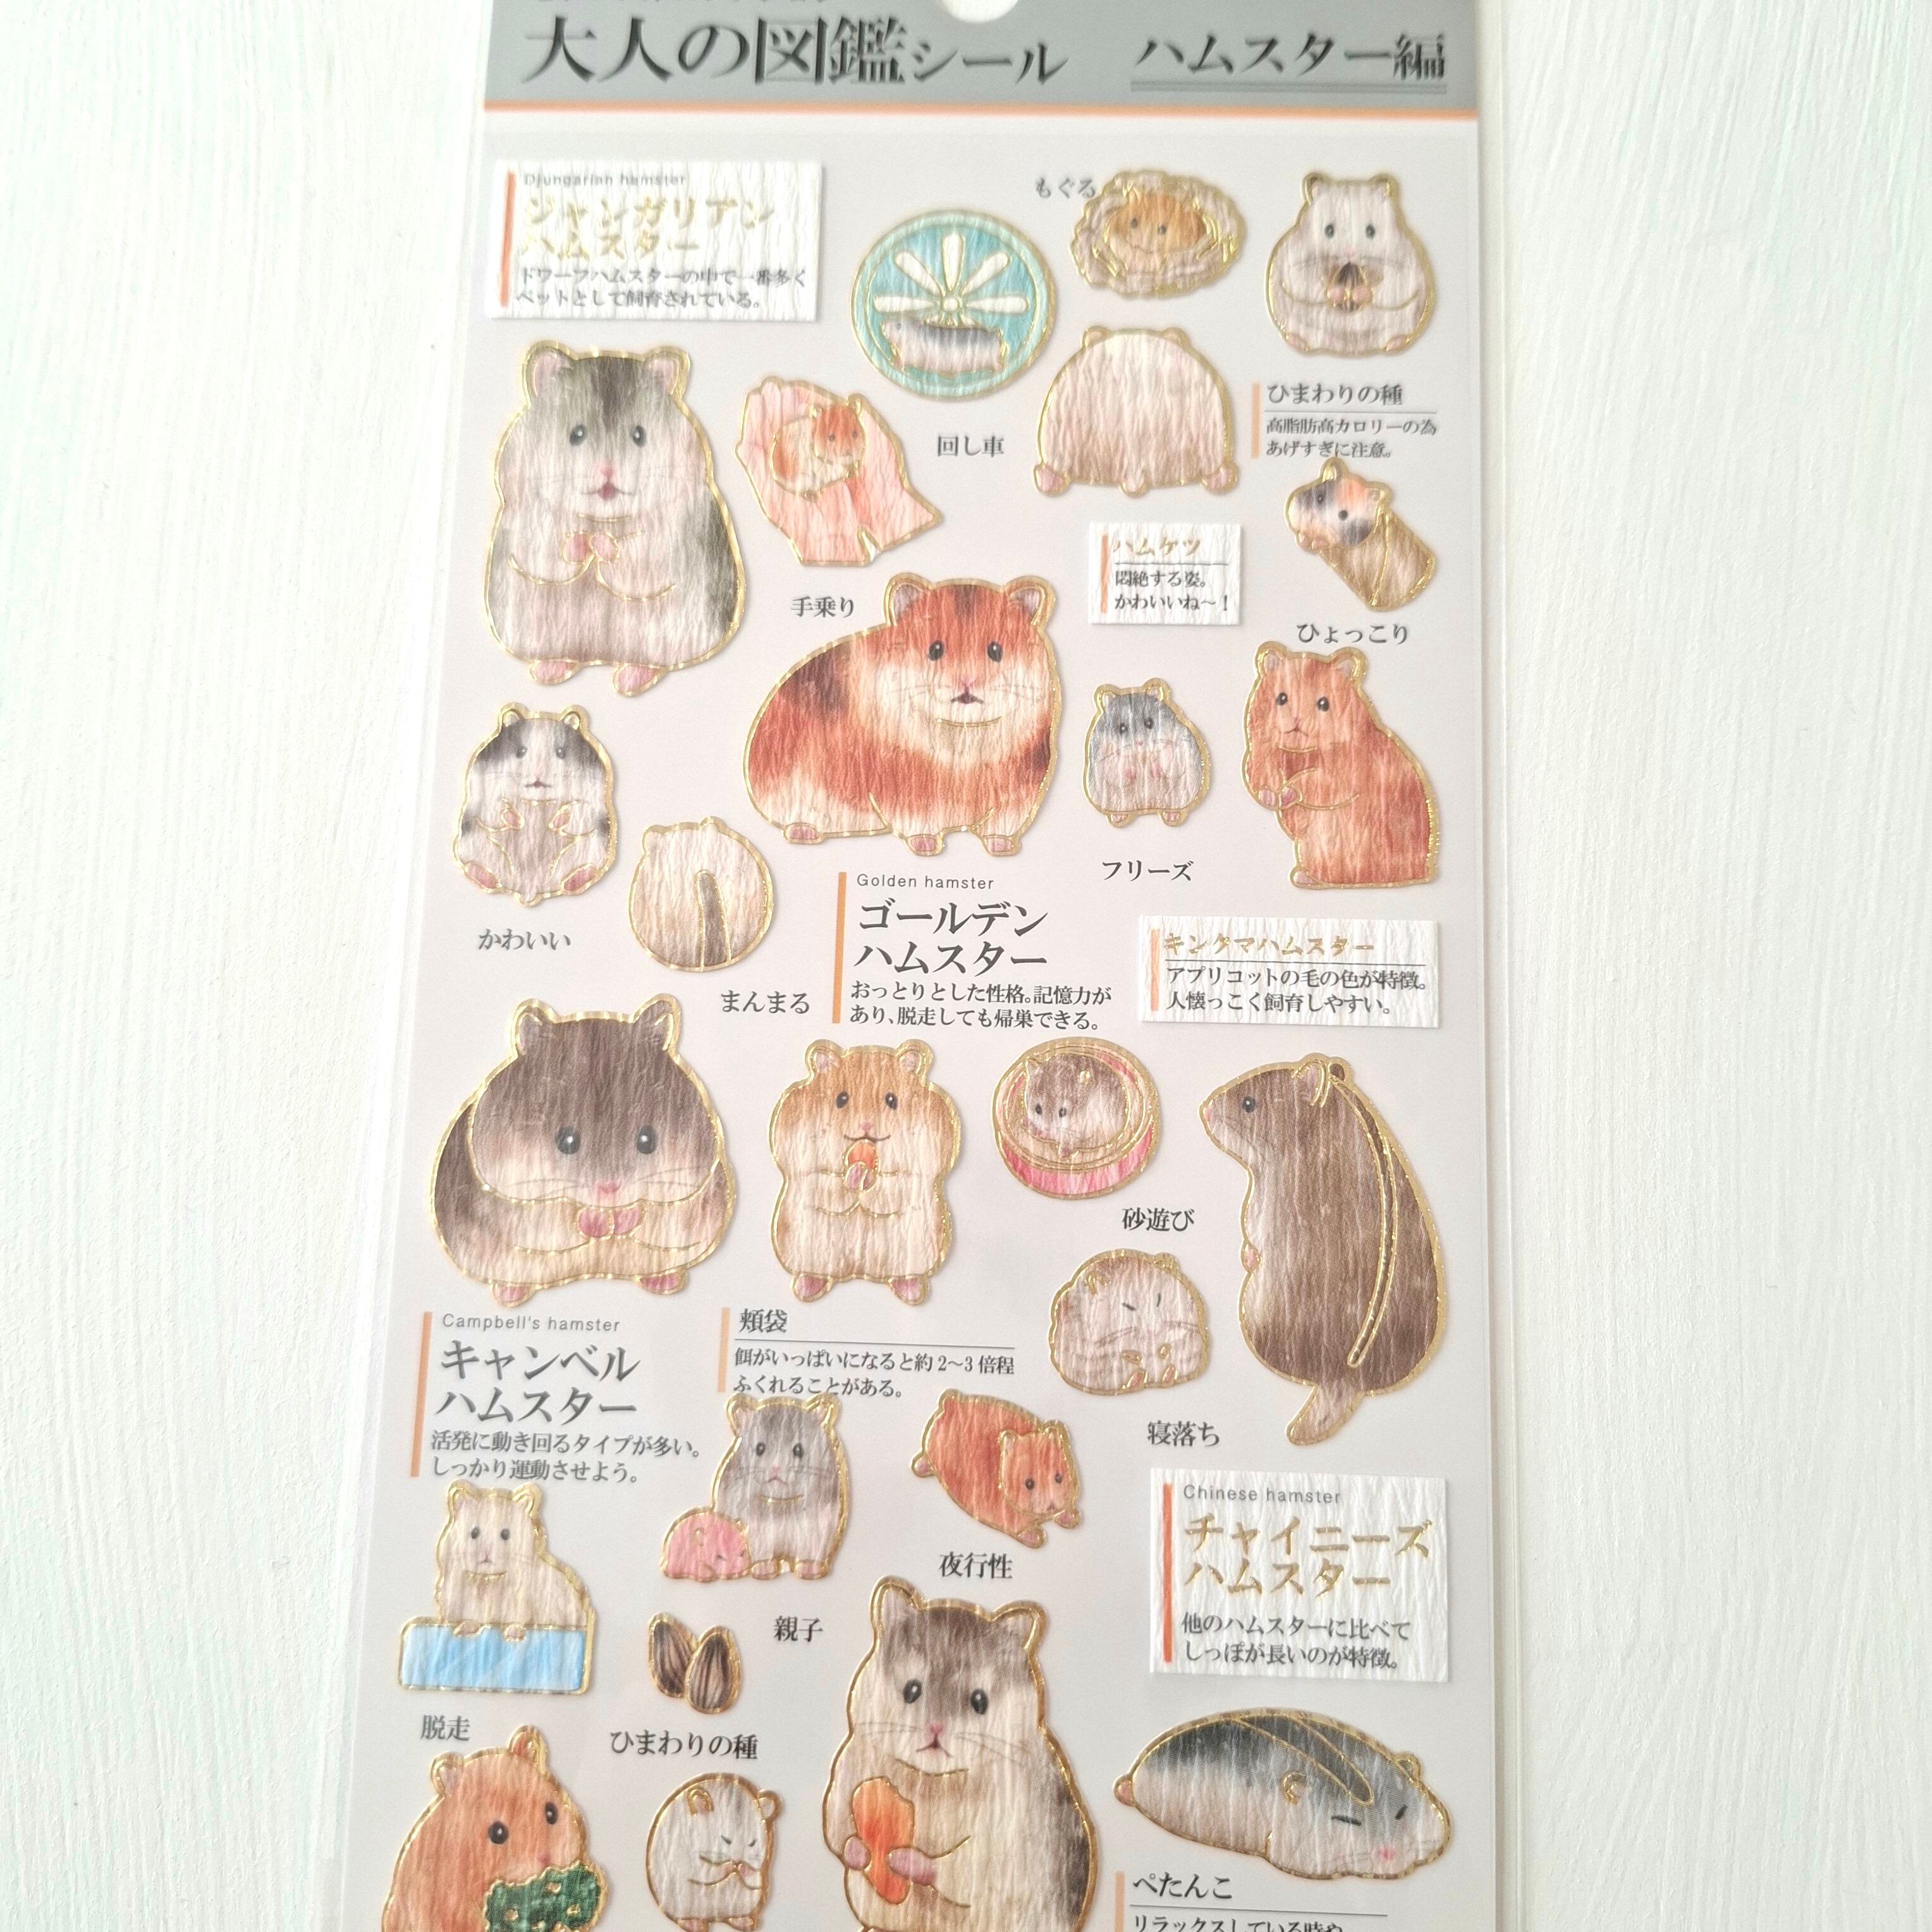 大人の図鑑シール ハムスター編
Djungarian hamster
ジャンガリアン
ハムスター
ドワーフハムスターの中で一番多く
ペットとして飼育されている。
もぐる
回し車
ひまわりの種
高脂肪高カロリーの為
あげすぎに注意。
手乗り
ハムケツ
悶絶する姿。
かわいいね〜！
ひょっこり
かわいい
まんまる
フリーズ
Golden hamster
ゴールデン
ハムスター
おっとりとした性格。記憶力が
あり、脱走しても帰巣できる。
キンクマハムスター
アプリコットの毛の色が特徴。
人懐っこく飼育しやすい。
砂遊び
Campbell's hamster
キャンベル
ハムスター
活発に動き回るタイプが多い。
しっかり運動させよう。
頬袋
餌がいっぱいになると約2〜3倍程
ふくれることがある。
寝落ち
夜行性
親子
Chinese hamster
チャイニーズ
ハムスター
他のハムスターに比べて
しっぽが長いのが特徴。
脱走
ひまわりの種
ぺたんこ
リラックスしている時や